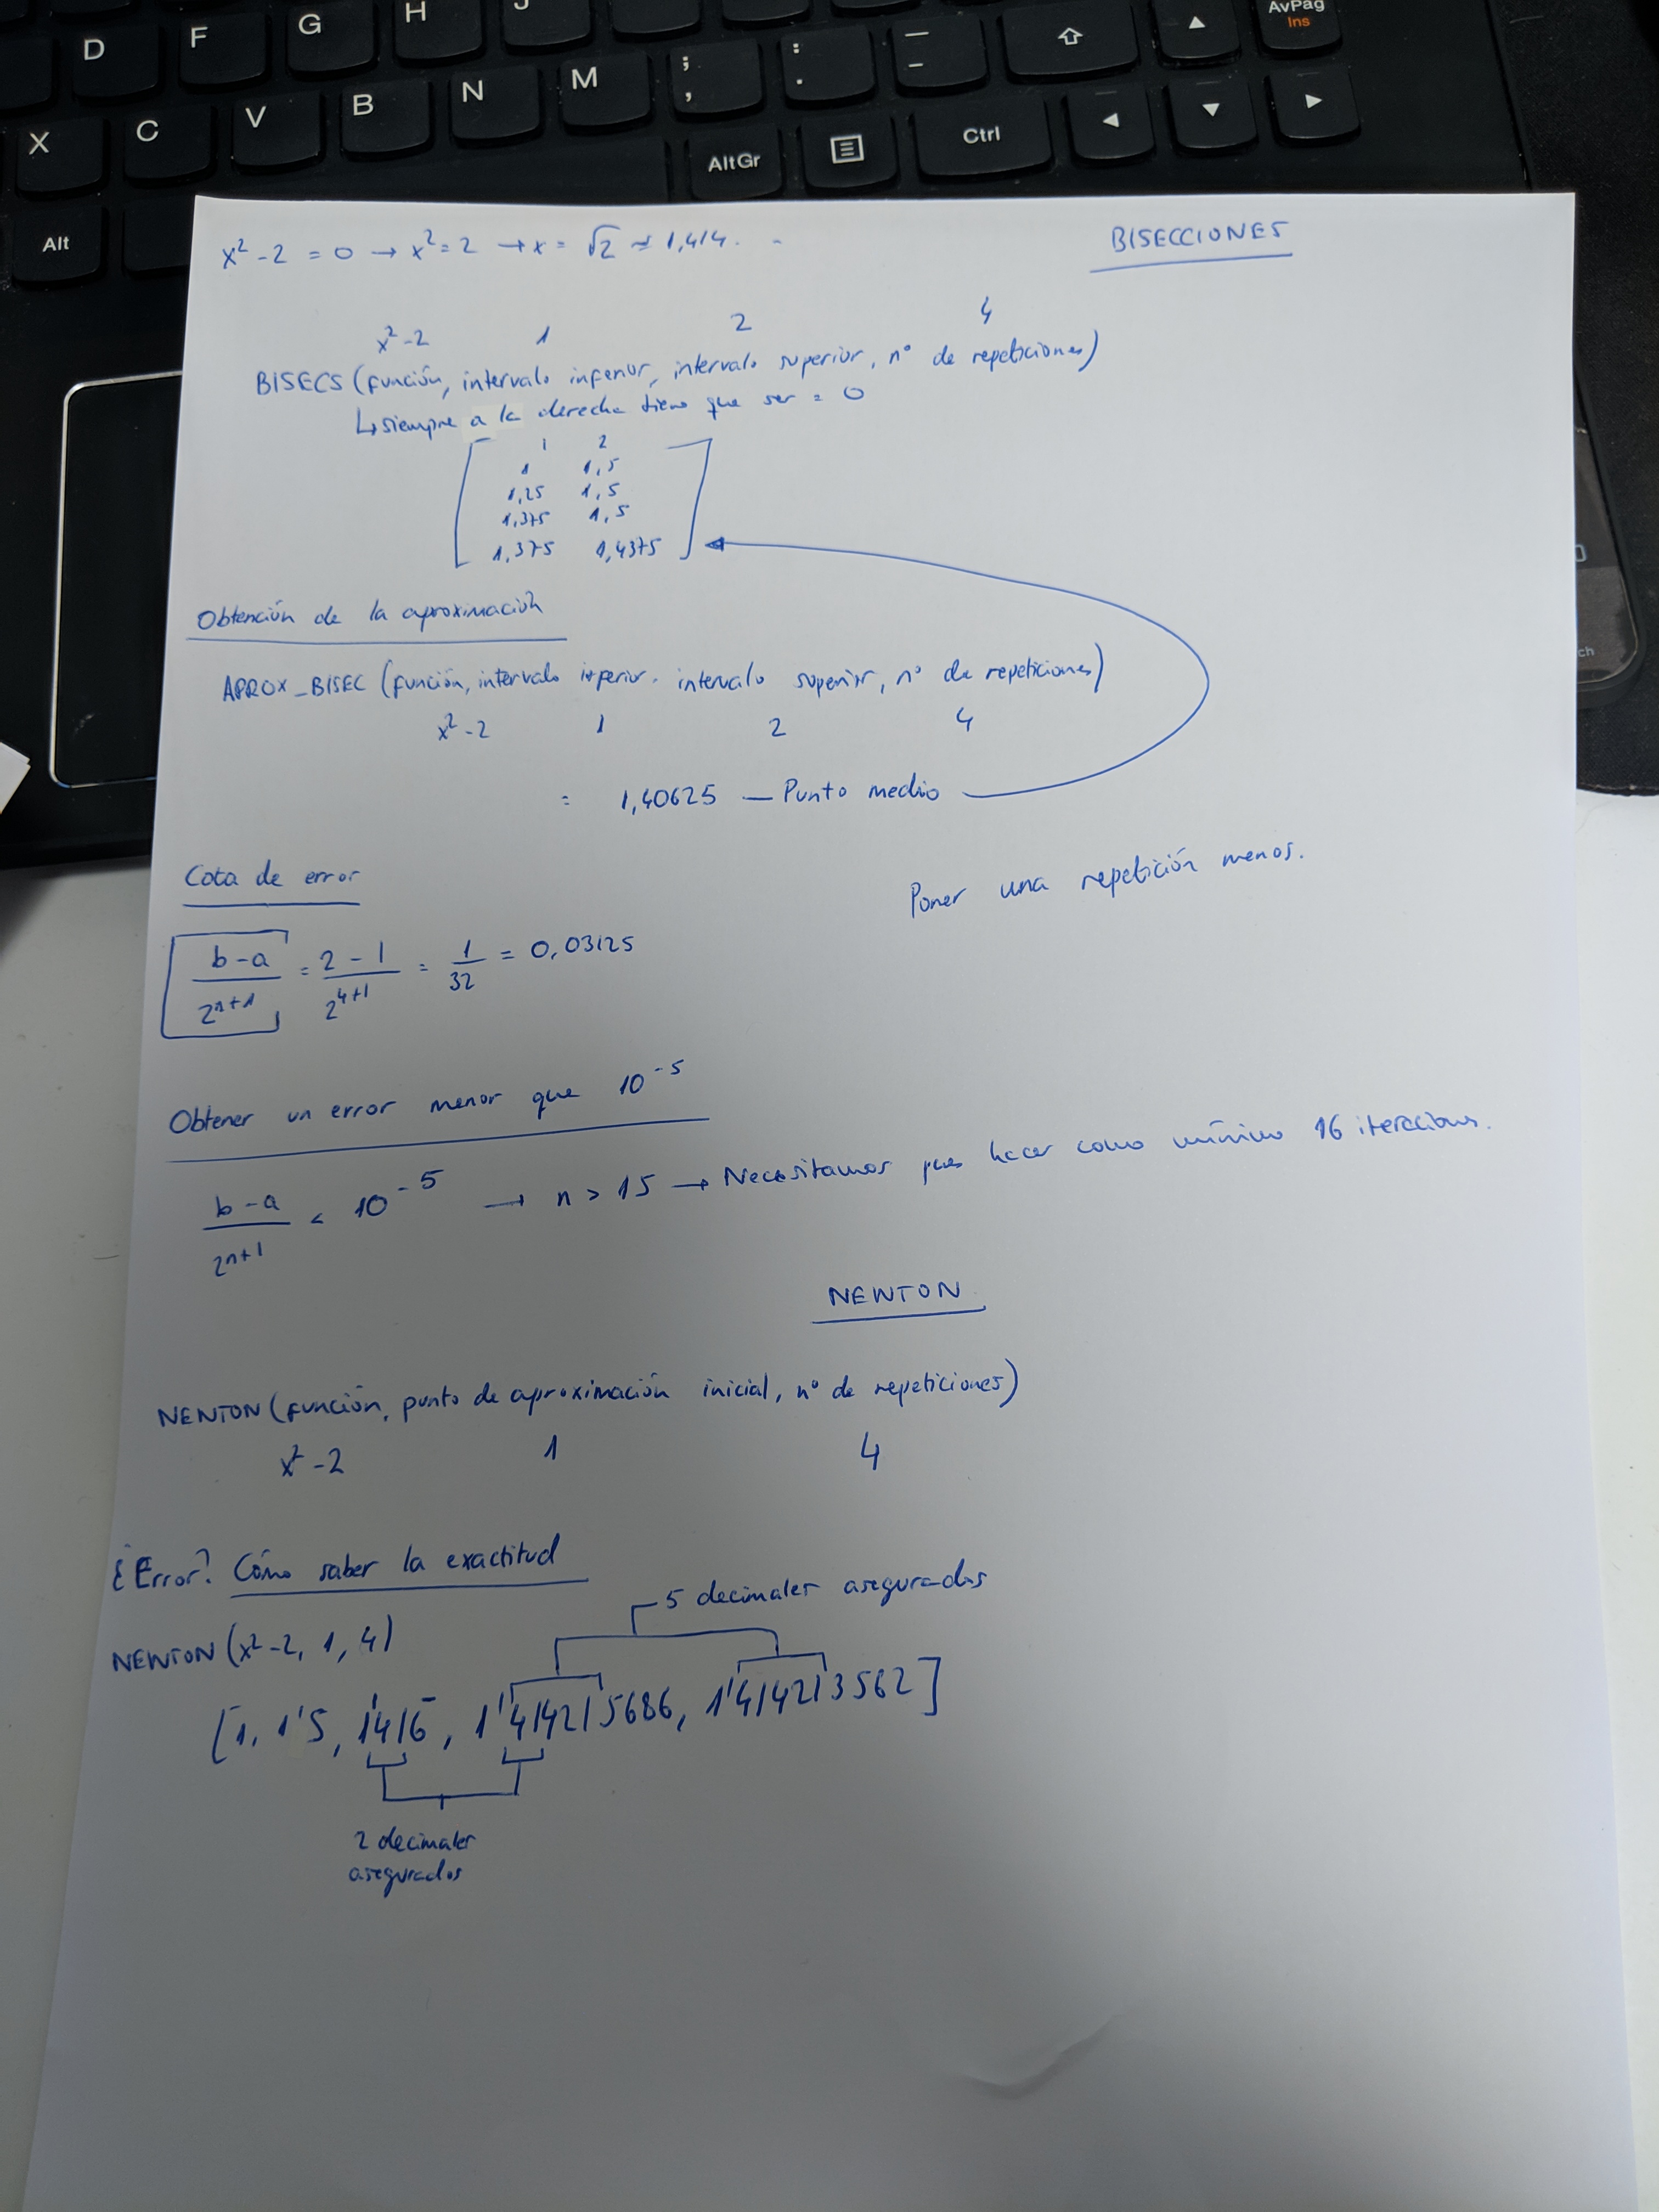 D F G H J
AvPág
Ins
X C V B N M ; , : . — –
AltGr
Ctrl
Alt
ch
x² - 2 = 0 → x² = 2 → x = √2 ≃ 1,414. -
BISECCIONES
x² - 2 1 2 4
BISECS (función, intervalo inferior, intervalo superior, nº de repeticiones)
↳ siempre a la derecha tiene que ser = 0
1 2
1 1,5
1,25 1,5
1,375 1,5
1,375 1,4375
Obtención de la aproximación
APROX_BISEC (función, intervalo inferior, intervalo superior, nº de repeticiones)
x² - 2 1 2 4
= 1,40625 — Punto medio
Cota de error
Poner una repetición menos.
b-a / 2ⁿ⁺¹ = 2 - 1 / 2⁴⁺¹ = 1/32 = 0,03125
Obtener un error menor que 10⁻⁵
b-a / 2ⁿ⁺¹ < 10⁻⁵ → n > 15 → Necesitamos pues hacer como mínimo 16 iteraciones.
NEWTON
NEWTON (función, punto de aproximación inicial, nº de repeticiones)
x² - 2 1 4
¿Error? Cómo saber la exactitud
5 decimales asegurados
NEWTON (x² - 2, 1, 4)
[1, 1'5, 1'416, 1'414215686, 1'414213562]
2 decimales
asegurados